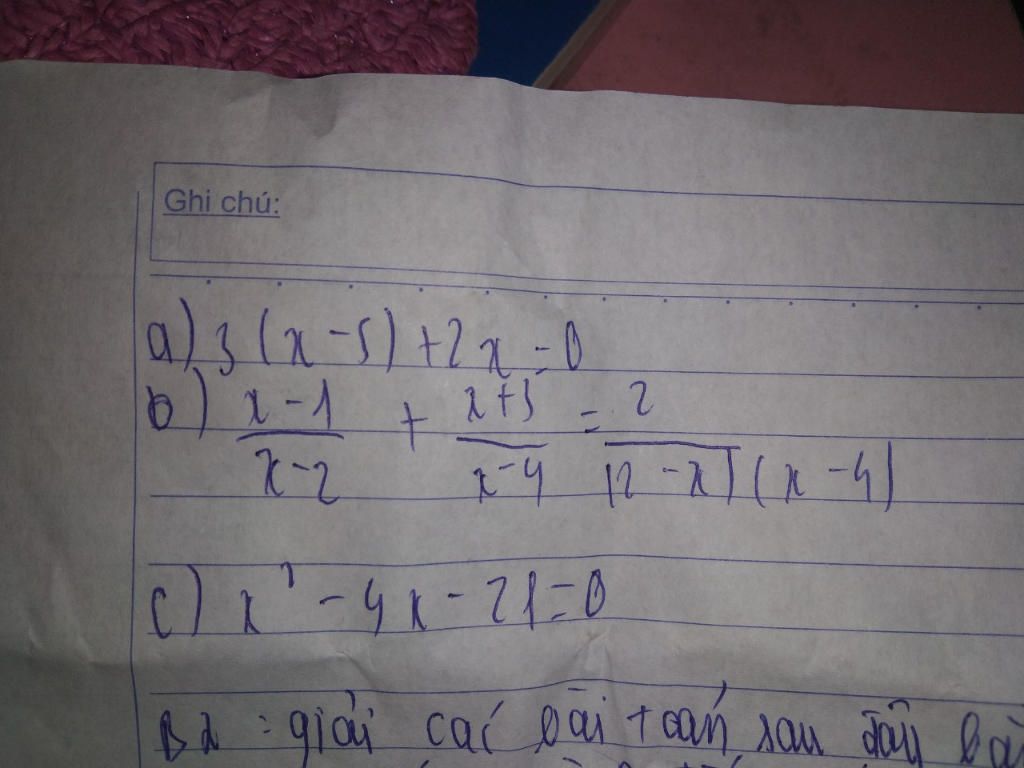 Ghi chú:
a) 3(x-5)+2x=0
b) \frac{x-1}{x-2} + \frac{x+3}{x-4} = \frac{2}{(2-x)(x-4)}
c) x² - 4x - 21 = 0
B2: giải các bài toán sau đây bằ